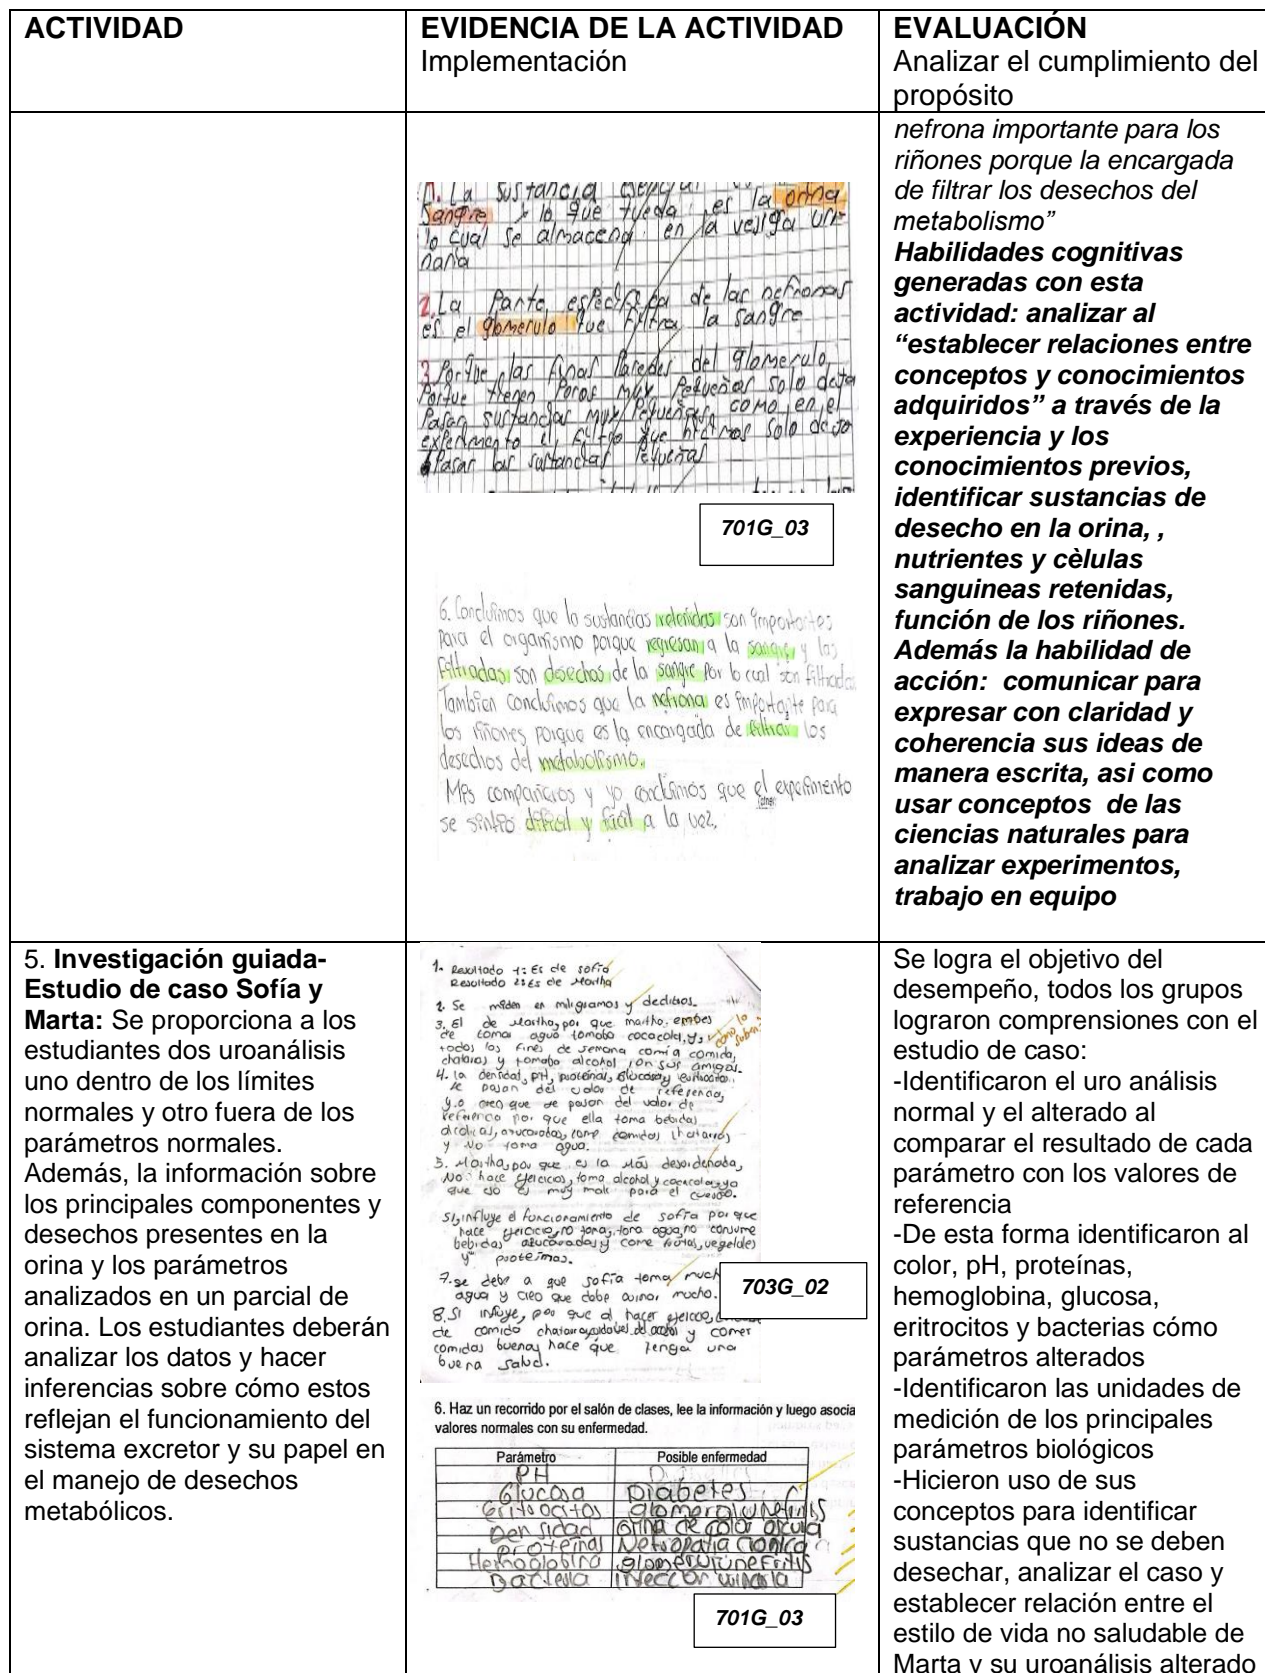 ACTIVIDAD
EVIDENCIA DE LA ACTIVIDAD
Implementación
EVALUACIÓN
Analizar el cumplimiento del
propósito
1. La sustancia es
sangre, y lo que queda es la orina
lo cual se almacena en la vejiga uri
naria
2. La Parte especifica de las nefronas
es el glomerulo que filtra la sangre
3. Porque las finas Paredes del glomerulo
Porque tienen Poros muy Pequeños solo deja
Pasar sustancias muy Pequeñas como en el
experimento el filtro que hicimos solo dejo
Pasar las sustancias Pequeñas
701G_03
6. Concluimos que la sustancias retenidas son importantes
para el organismo porque regresan a la sangre y las
filtradas son desechos de la sangre por lo cual son filtradas
Tambien concluimos que la nefrona es importante para
los riñones porque es la encargada de filtrar los
desechos del metabolismo.
Mis compañeros y yo concluimos que el experimento
se sintio dificil y facil a la vez.
nefrona importante para los
riñones porque la encargada
de filtrar los desechos del
metabolismo”
Habilidades cognitivas
generadas con esta
actividad: analizar al
“establecer relaciones entre
conceptos y conocimientos
adquiridos” a través de la
experiencia y los
conocimientos previos,
identificar sustancias de
desecho en la orina, ,
nutrientes y cèlulas
sanguineas retenidas,
función de los riñones.
Además la habilidad de
acción: comunicar para
expresar con claridad y
coherencia sus ideas de
manera escrita, asi como
usar conceptos de las
ciencias naturales para
analizar experimentos,
trabajo en equipo
5. Investigación guiada-
Estudio de caso Sofía y
Marta: Se proporciona a los
estudiantes dos uroanálisis
uno dentro de los límites
normales y otro fuera de los
parámetros normales.
Además, la información sobre
los principales componentes y
desechos presentes en la
orina y los parámetros
analizados en un parcial de
orina. Los estudiantes deberán
analizar los datos y hacer
inferencias sobre cómo estos
reflejan el funcionamiento del
sistema excretor y su papel en
el manejo de desechos
metabólicos.
1. Resultado 1: Es de sofía
Resultado 2: Es de Martha
2. Se miden en miligramos y decilitros.
3. El de Martha, por que martha. enves
de tomar agua tomaba cocacola, y,
todos los fines de semana comía comida,
chatarras y tomaba alcohol con sus amigas.
como lo saben?
4. la densidad, PH, proteínas, glucosa y eritrocitos.
se pasan del valor de referencia,
y.o creo que se pasan del valor de
referencia por que ella toma bebidas
alcolicas, azucaradas, come comidas chatarras
y No toma agua.
5. Martha, por que es la más desordenada,
No hace ejercicios, toma alcohol y cocacola, ya
que eso es muy malo para el cuerpo.
SI, influye el funcionamiento de sofía por que
hace ejercicio, no toma, toma agua, no consume
bebidas azucaradas, y come frutas, vegetales
y proteínas.
7. se debe a que sofía toma much
agua y creo que debe orinar mucho.
8. SI influye, por que al hacer ejercicio,
de comida chatarra, y comer
comidas buenas hace que tenga una
buena salud.
703G_02
6. Haz un recorrido por el salón de clases, lee la información y luego asocia
valores normales con su enfermedad.
Parámetro Posible enfermedad
PH
Glucosa Diabetes
Eritrocitos glomerolunefritis
Densidad orina de color oscura
Proteinas Nefropatia cronica
Hemoglobina glomerulunefritis
Bacteria infeccor urinaria
701G_03
Se logra el objetivo del
desempeño, todos los grupos
lograron comprensiones con el
estudio de caso:
-Identificaron el uro análisis
normal y el alterado al
comparar el resultado de cada
parámetro con los valores de
referencia
-De esta forma identificaron al
color, pH, proteínas,
hemoglobina, glucosa,
eritrocitos y bacterias cómo
parámetros alterados
-Identificaron las unidades de
medición de los principales
parámetros biológicos
-Hicieron uso de sus
conceptos para identificar
sustancias que no se deben
desechar, analizar el caso y
establecer relación entre el
estilo de vida no saludable de
Marta y su uroanálisis alterado